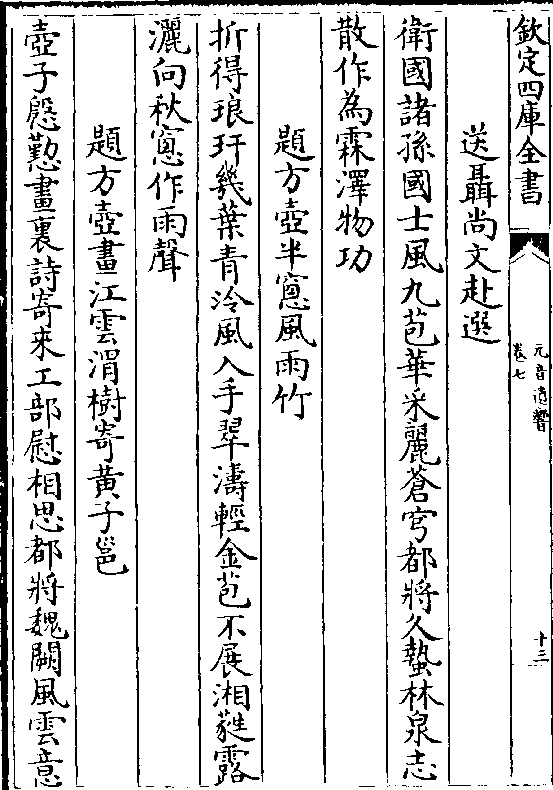 欽定四庫全書
元音遺響
卷七
十三
送聶尚文赴選
衛國諸孫國士風九苞華采麗蒼穹都將久蟄林泉志
散作為霖澤物功
題方壺半窻風雨竹
折得琅玕幾葉青泠風入手翠濤輕金苞不展湘蕤露
灑向秋窻作雨聲
題方壺畫江雲渭樹寄黃子邕
壺子慇懃畫裏詩寄來工部慰相思都將魏闕風雲意